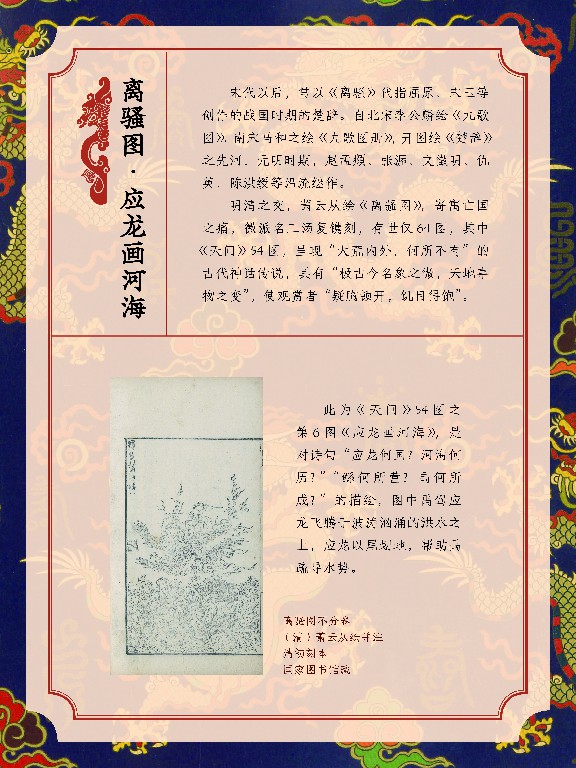 离骚图·应龙画河海
宋代以后，常以《离骚》代指屈原、宋玉等
创作的战国时期的楚辞。自北宋李公麟绘《九歌
图》、南宋马和之绘《九歌图册》，开图绘《楚辞》
之先河，元明时期，赵孟頫、张渥、文徵明、仇
英、陈洪绶等沿流绘作。
明清之交，萧云从绘《离骚图》，寄寓亡国
之痛，徽派名工汤复镌刻，存世仅64图，其中
《天问》54图，呈现“大荒内外，何所不有”的
古代神话传说，具有“极古今名象之傲，天地事
物之变”，使观赏者“疑胸顿开，饥目得饱”。
此为《天问》54图之
第6图《应龙画河海》，是
对诗句“应龙何画？河海何
历？”“鲧何所营？禹何所
成？”的描绘，图中禹驾应
龙飞腾于波涛汹涌的洪水之
上，应龙以尾划地，辅助禹
疏导水势。
离骚图不分卷
（清）萧云从绘并注
清初刻本
国家图书馆藏